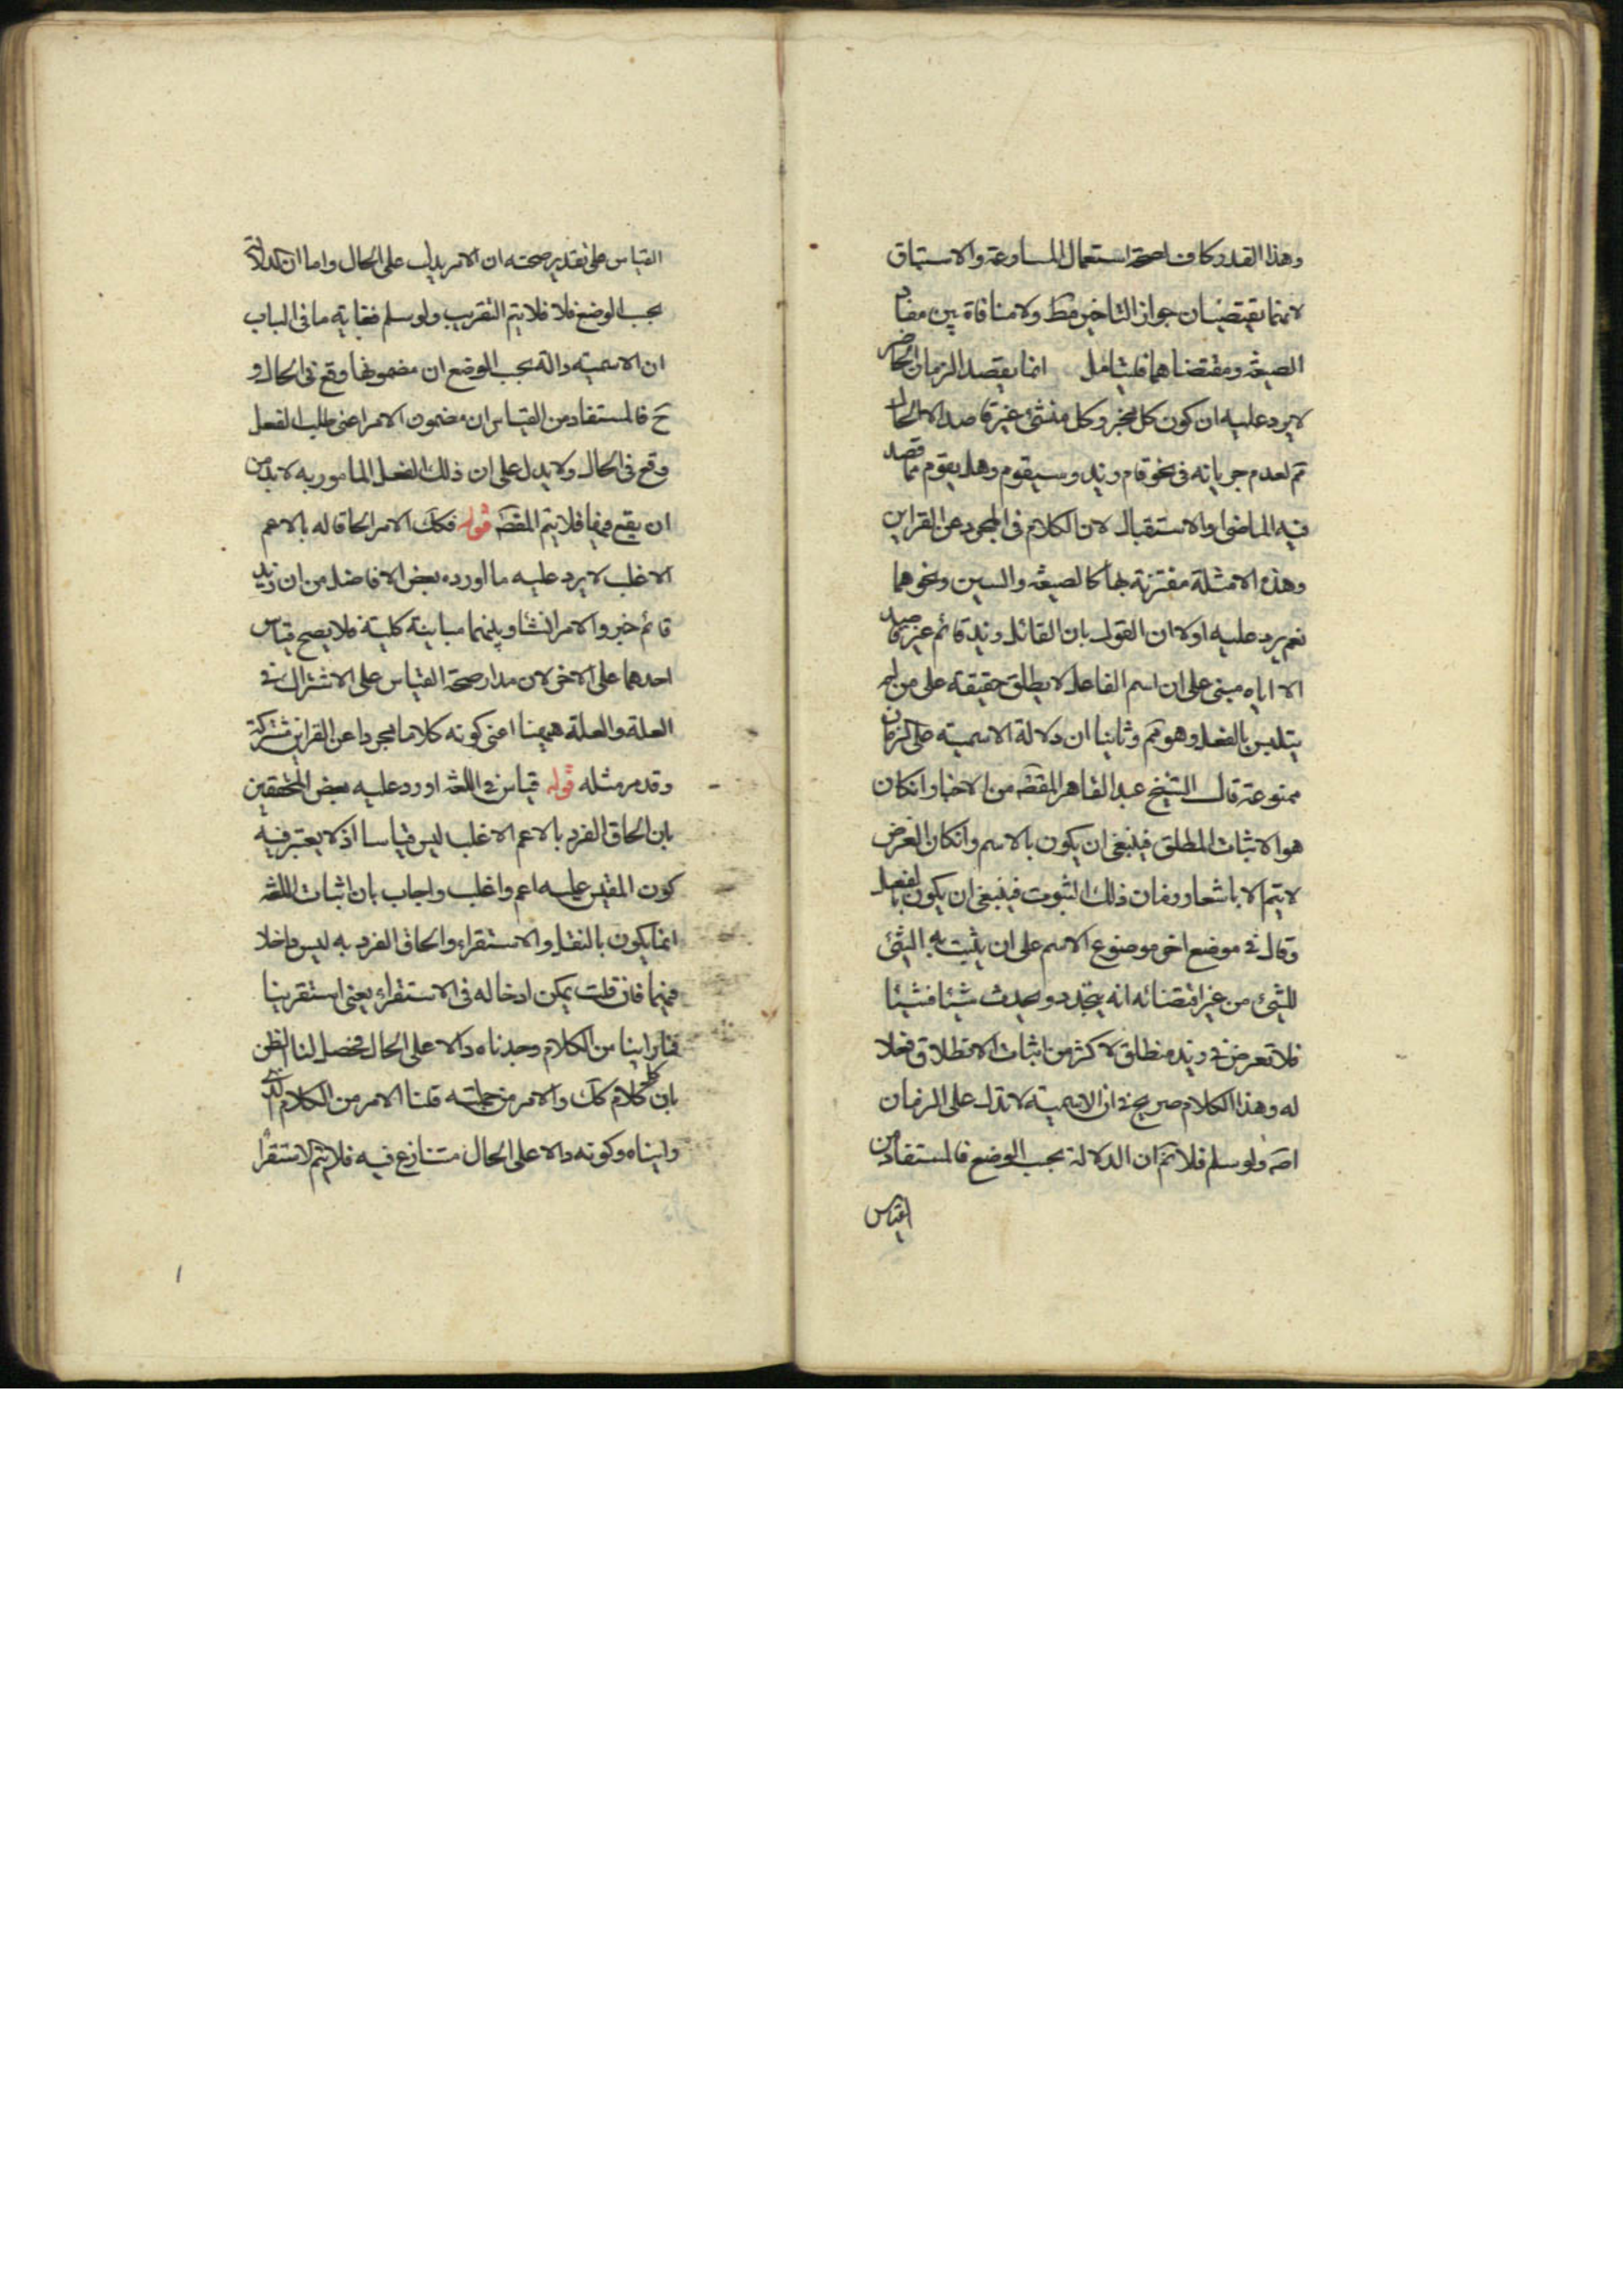 وهذا القدر كاف لصحة استعمال المسارعة والاستباق
لانهما يقتضيان جواز التاخير فقط ولا منافاة بين مفاد
الصيغة ومقتضاهما فليتامل انما يقصد الزمان الحاضر
لا يرد عليه ان كون كل مخبر وكل منشئ غير قاصد الا الحال
تم لعدم جريانه في نحو قام زيد وسيقوم وهل يقوم مما قصد
فيه الماضي او الاستقبال لان الكلام في المجرد عن القراين
وهذه الامثلة مقترنة بها كالصيغة والسين ونحوهما
نعم يرد عليه اولا ان القول بان القائل زيد قائم غير قاصد
الا اياه مبني على ان اسم الفاعل لا يطلق حقيقة على من لم
يتلبس بالفعل وهو مم وثانيا ان دلالة الاسمية على الزمان
ممنوعة قال الشيخ عبد القاهر المقصه من الاخبار انكان
هو الاثبات المطلق فينبغي ان يكون بالاسم وانكان الغرض
لا يتم الا باشعار زمان ذلك الثبوت فينبغي ان يكون بالفعل
وقال في موضع اخر موضوع الاسم على ان يثبت به الشئ
للشئ من غير اقتضائه انه يتجدد ويحدث شيئا فشيئا
فلا تعرض في زيد منطلق لاكثر من اثبات الانطلاق فعلا
له وهذا الكلام صريح في ان الاسمية لا تدل على الزمان
اصه ولو سلم فلا نم ان الدلالة بحسب الوضع فالمستفاد من
القياس
القياس على تقدير صحته ان الامر يدل على الحال واما ان دلالته
بحسب الوضع فلا فلا يتم التقريب ولو سلم فغاية ما في الباب
ان الاسمية دالة بحسب الوضع ان مضمونها وقع في الحال و
ح فالمستفاد من القياس ان مضمون الامر اعني طلب الفعل
وقع في الحال ولا يدل على ان ذلك الفعل المامور به لابد من
ان يقع فيها فلا يتم المقصه قوله فكك الامر الحاقا له بالاعم
الاغلب لا يرد عليه ما اورده بعض الافاضل من ان زيد
قائم خبر والامر انشاء وبينهما مباينة كلية فلا يصح قياس
احدهما على الاخر لان مدار صحة القياس على الاشتراك في
العلة والعلة ههنا اعني كونه كلاما مجردا عن القراين مشتركة
وقد مر مثله قوله قياس في اللغة اورد عليه بعض المحققين
بان الحاق الفرد بالاعم الاغلب ليس قياسا اذ لا يعتبر فيه
كون المقيس عليه اعم واغلب واجاب بان اثبات اللغة
انما يكون بالنقل والاستقراء والحاق الفرد به ليس داخلا
فيهما فان قلت يمكن ادخاله في الاستقراء يعني استقرينا
فما راينا من الكلام وجدناه دالا على الحال فحصل لنا الظن
بان كل كلام كك والامر من جملته قلنا الامر من الكلام الذي
رايناه وكونه دالا على الحال متنازع فيه فلا يتم الاستقراء